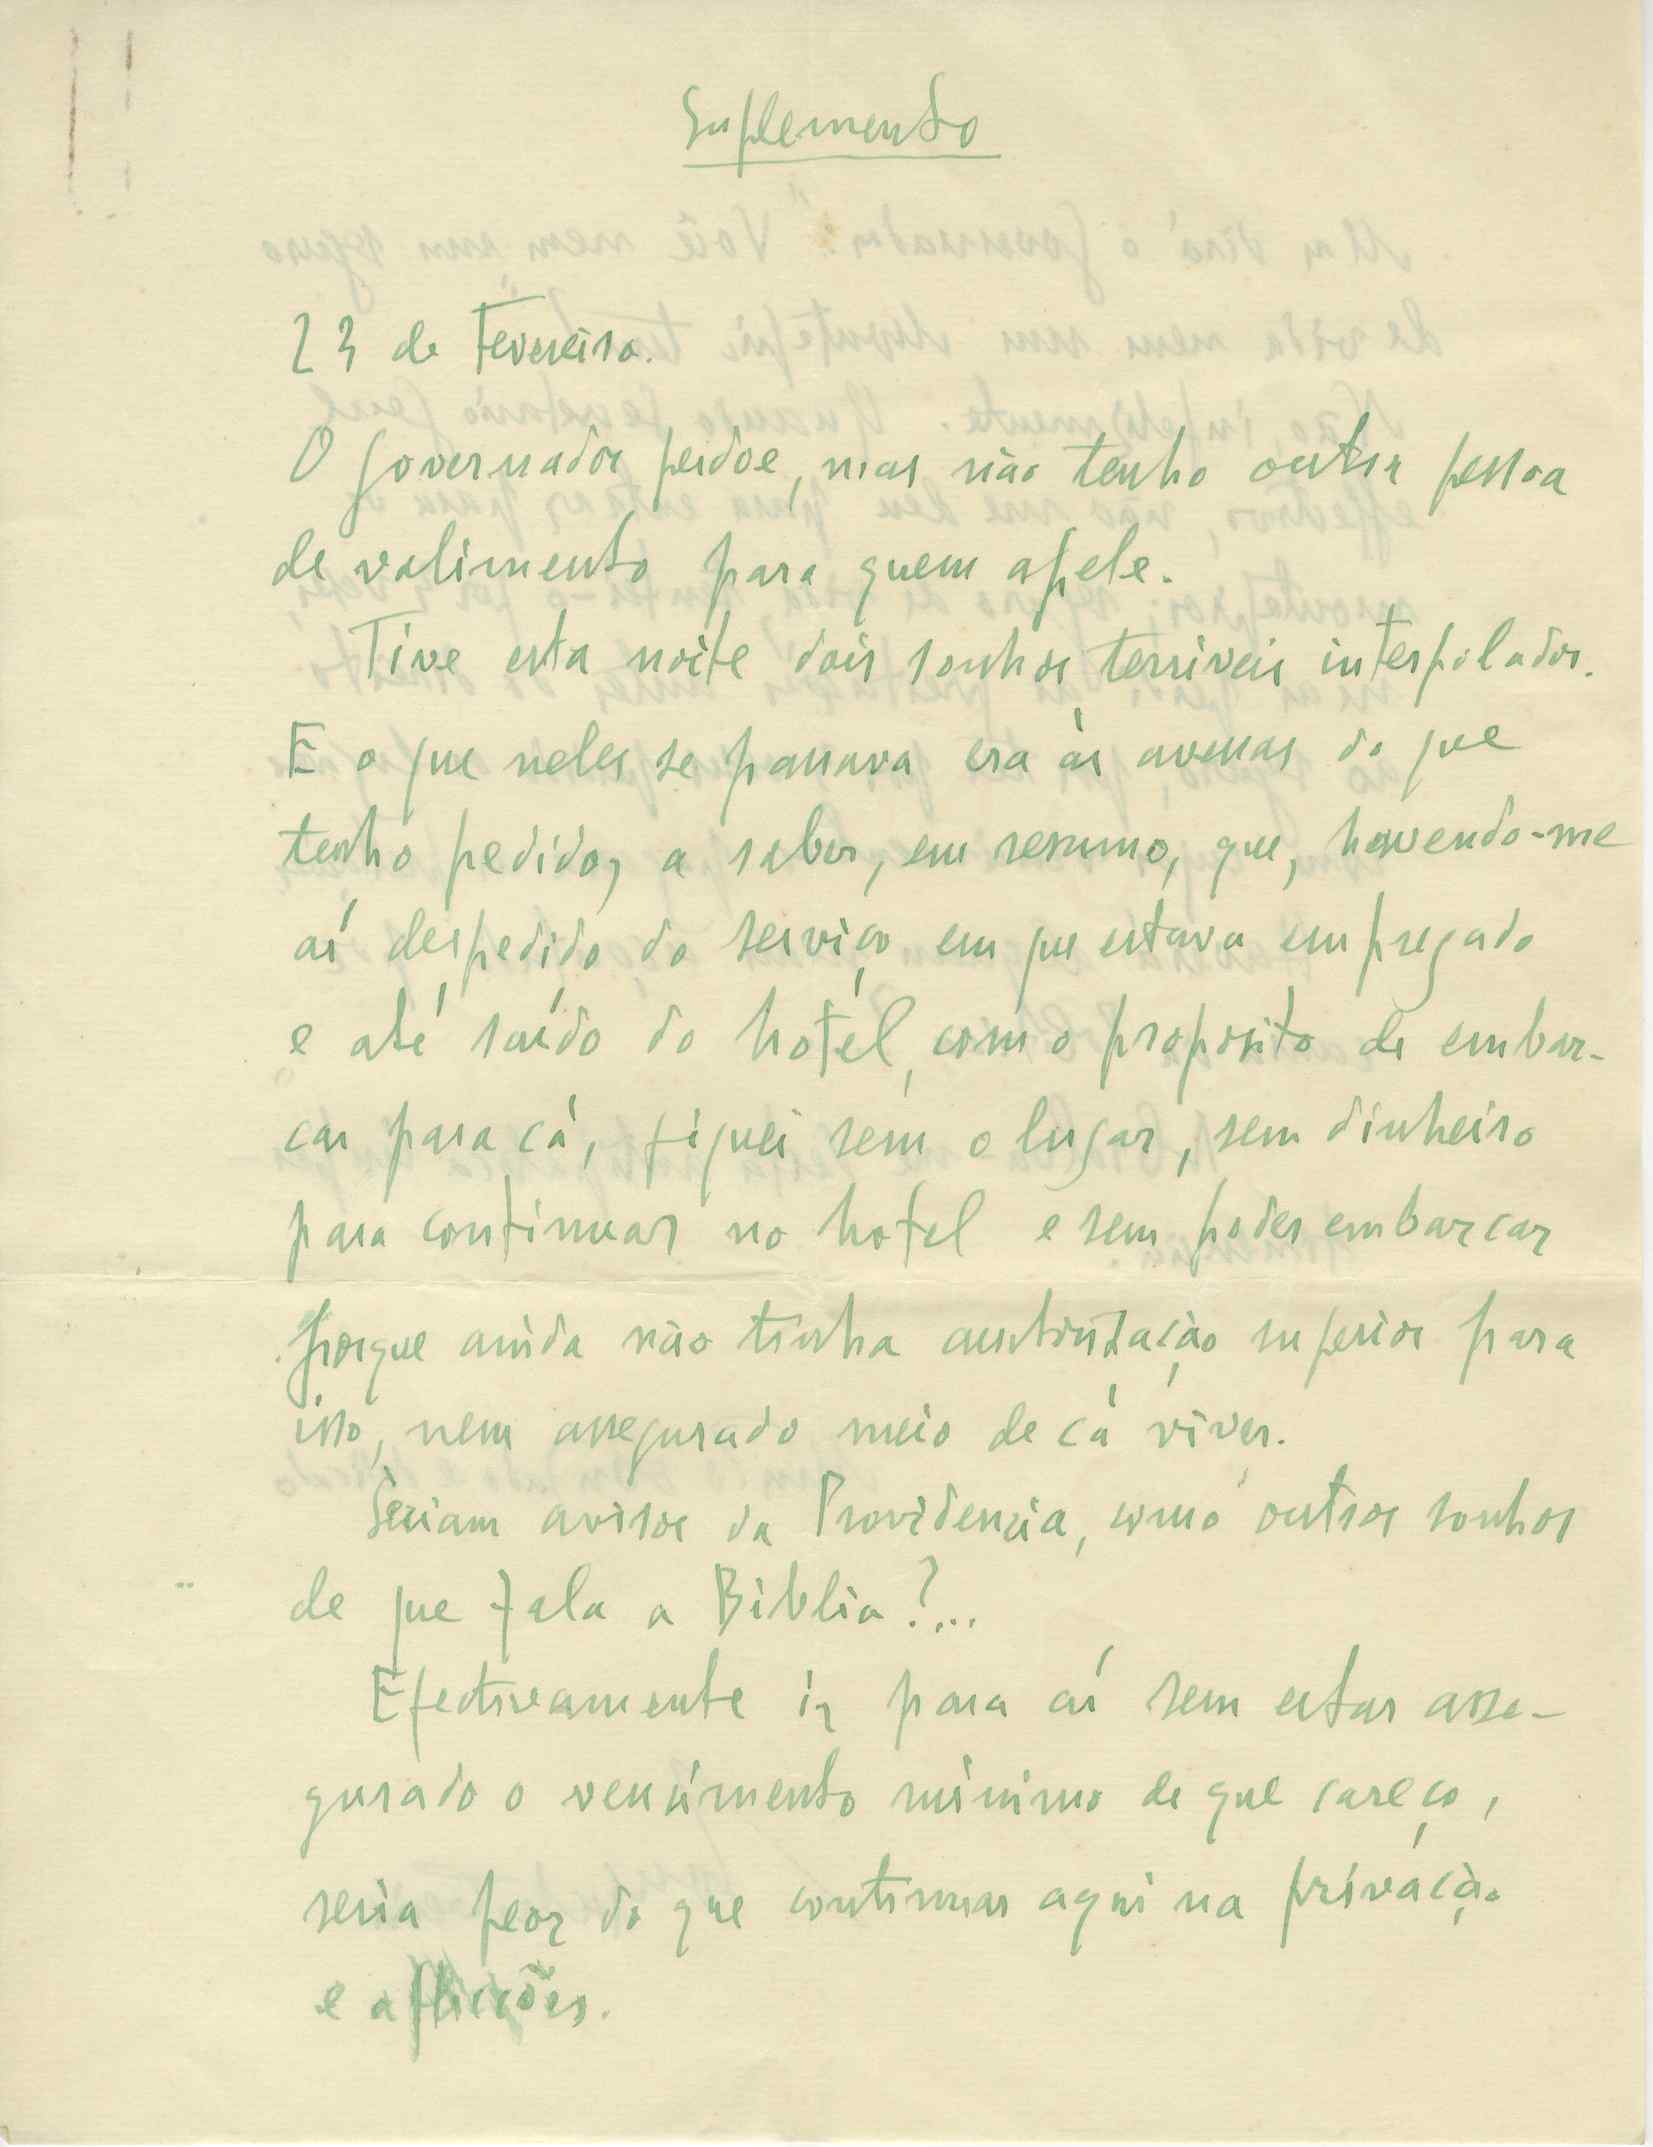 Suplemento
23 de Fevereiro.
O Governador perdoe, mas não tenho outra pessoa
de valimento para quem apele.
Tive esta noite dois sonhos terriveis interpolados.
E o que neles se passava era ás avessas do que
tenho pedido, a saber, em resumo, que, havendo-me
aí despedido do serviço em que estava empregado
e até saído do hotel, com o proposito de embar-
car para cá, fiquei sem o lugar, sem dinheiro
para continuar no hotel e sem poder embarcar
porque ainda não tinha autorização superior para
isso, nem assegurado meio de cá viver.
Seriam avisos da Providencia, como outros sonhos
de que fala a Biblia?...
Efectivamente ir para aí sem estar asse-
gurado o vencimento minimo de que careço,
seria peor do que continuar aqui na privação
e aflicções.